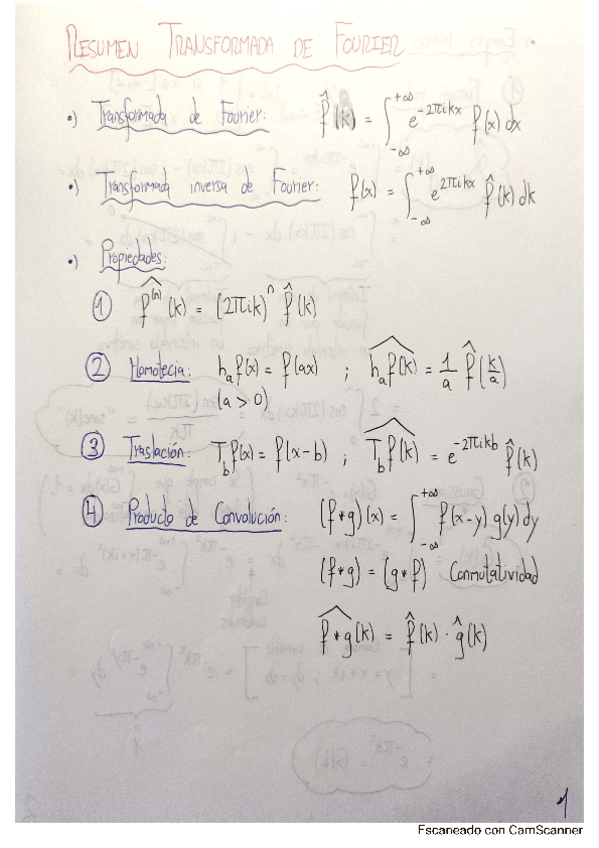 RESUMEN TRANSFORMADA DE FOURIER
•) Transformada de Fourier: f̂(k) = ∫_{-∞}^{+∞} e^{-2πikx} f(x) dx
•) Transformada inversa de Fourier: f(x) = ∫_{-∞}^{+∞} e^{2πikx} f̂(k) dk
•) Propiedades:
① \widehat{f^{(n)}}(k) = (2πik)^n f̂(k)
② Homotecia: h_a f(x) = f(ax) ; \widehat{h_a f(k)} = 1/a f̂(k/a)
(a > 0)
③ Traslación: T_b f(x) = f(x-b) ; \widehat{T_b f(k)} = e^{-2πikb} f̂(k)
④ Producto de Convolución: (f*g)(x) = ∫_{-∞}^{+∞} f(x-y) g(y) dy
(f*g) = (g*f) Conmutatividad
\widehat{f*g}(k) = f̂(k) · ĝ(k)
1
Escaneado con CamScanner